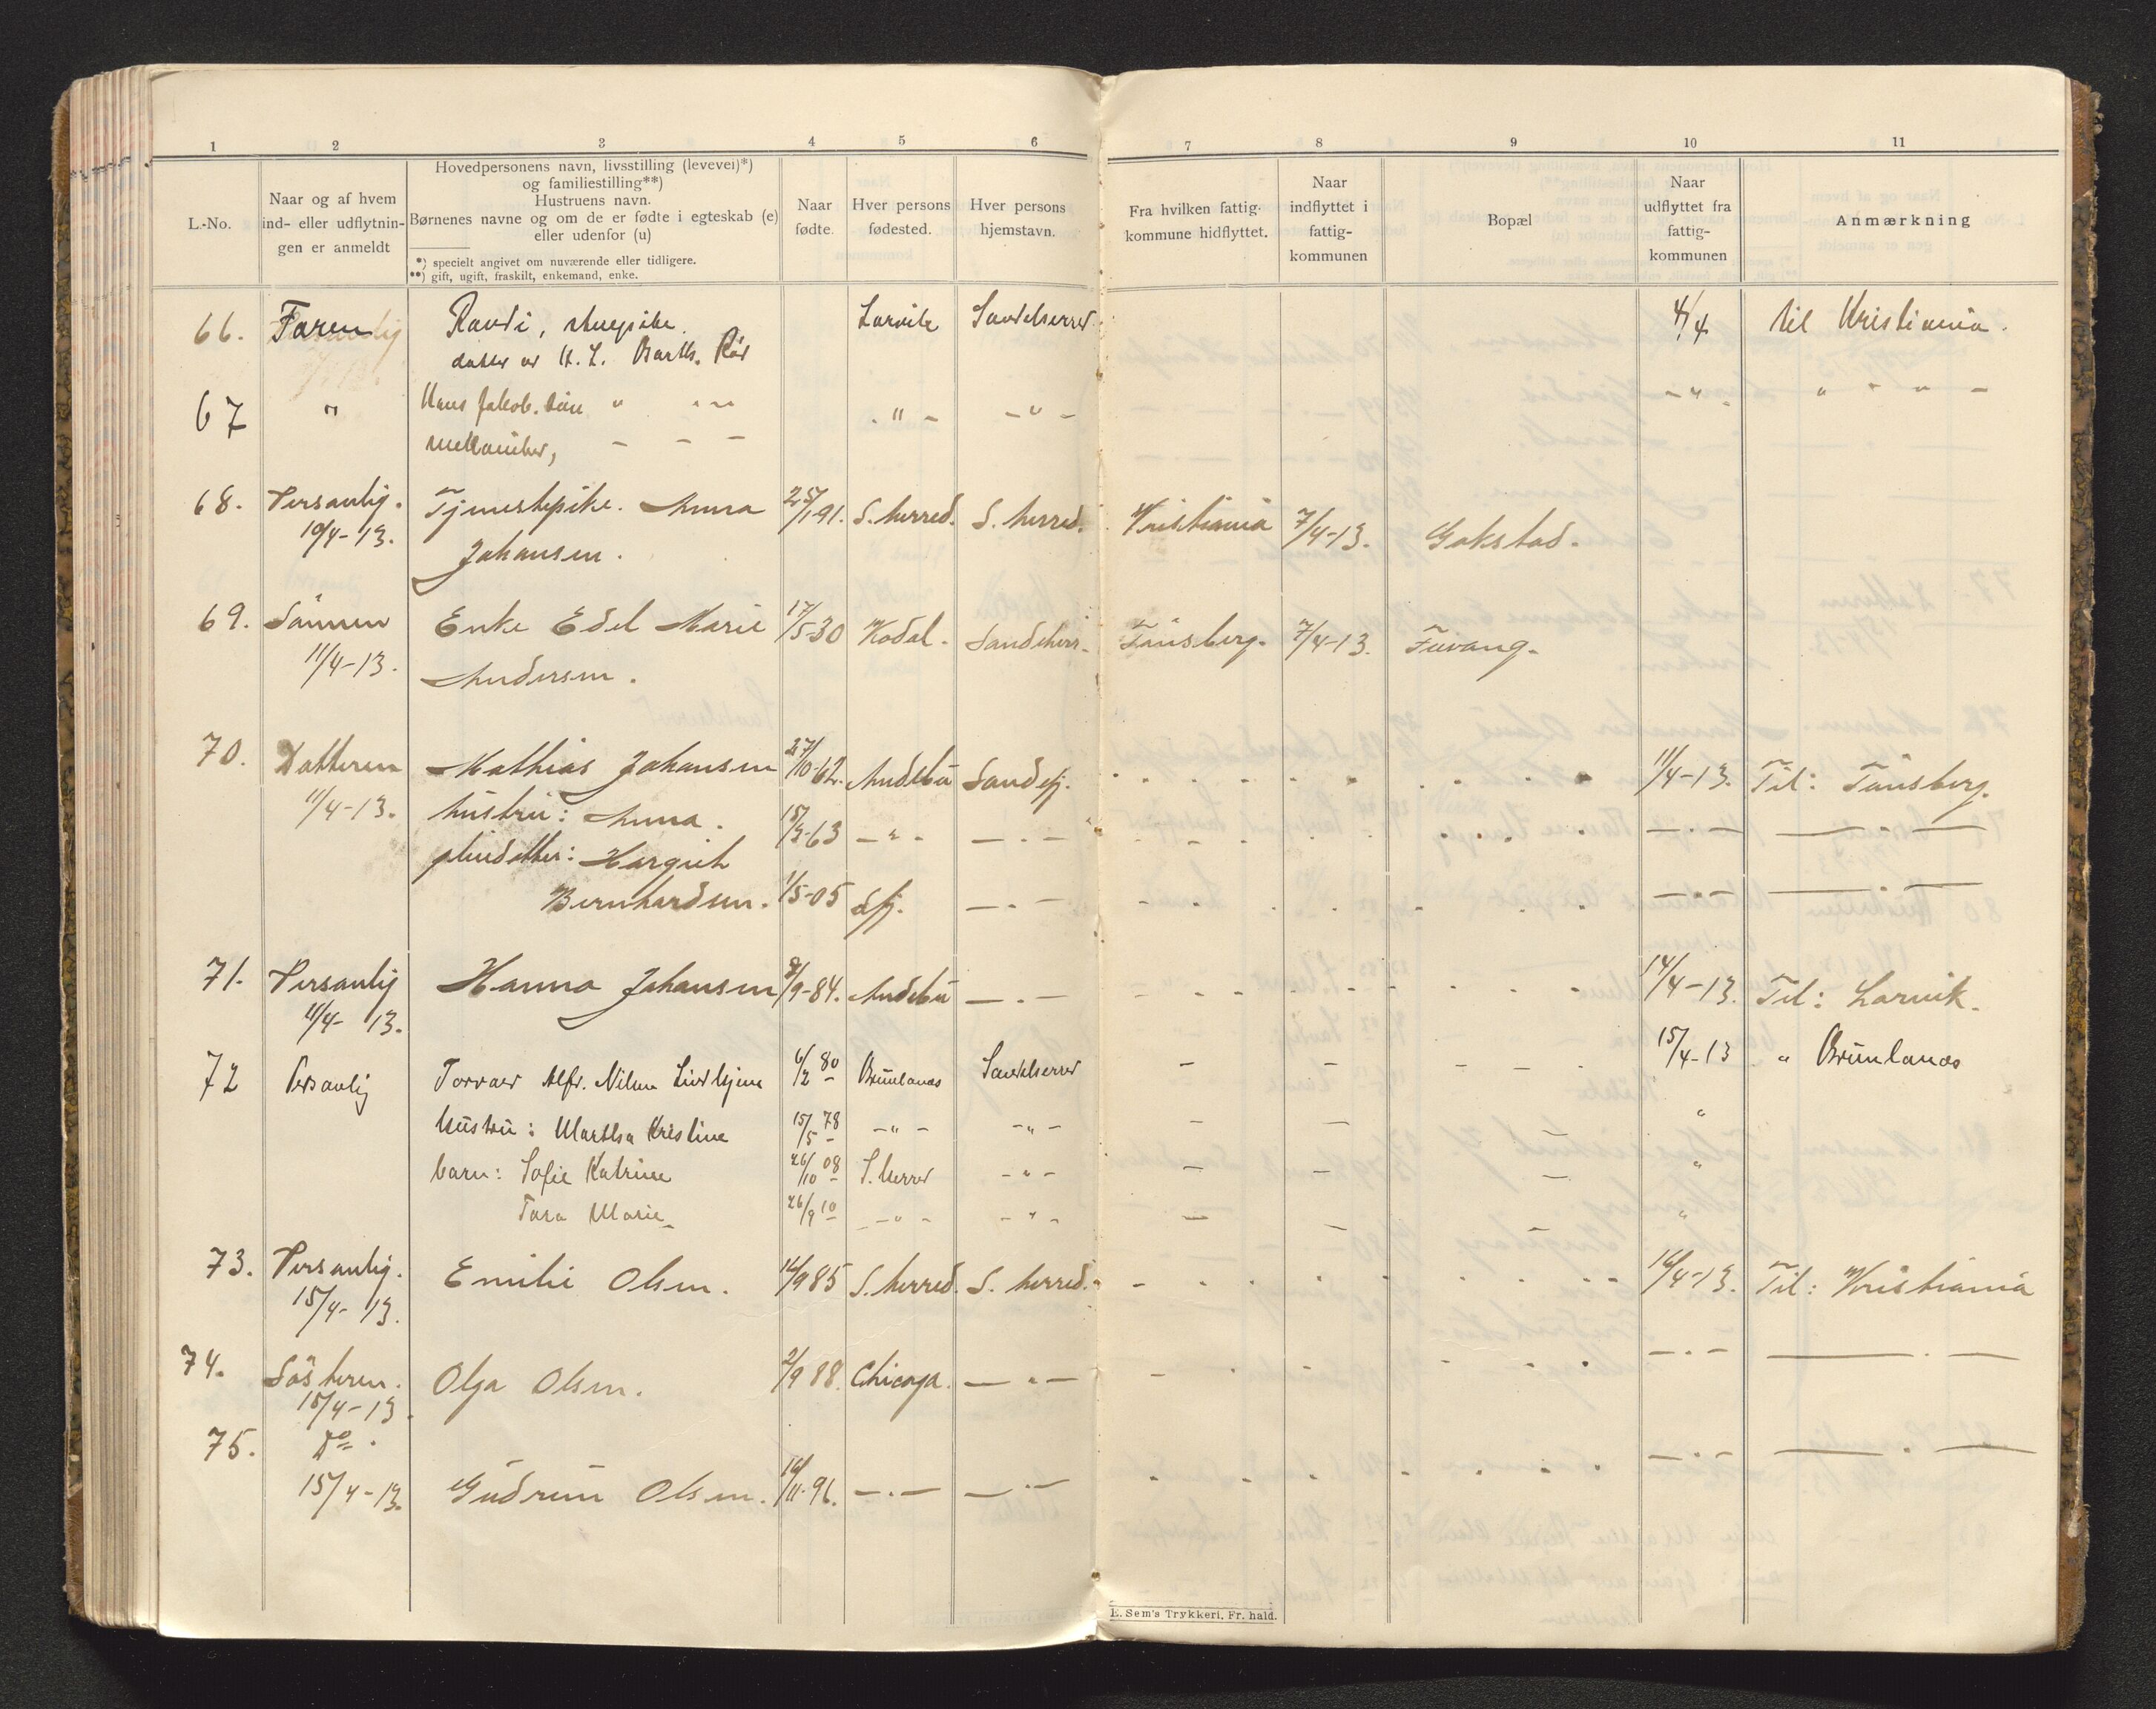 1 2 3 4 5 6 7 8 9 10 11
L.-No.
Naar og af hvem
ind- eller udflytnin-
gen er anmeldt
Hovedpersonens navn, livsstilling (levevei)*)
og familiestilling**)
Hustruens navn.
Børnenes navne og om de er fødte i egteskab (e)
eller udenfor (u)
*) specielt angivet om nuværende eller tidligere.
**) gift, ugift, fraskilt, enkemand, enke.
Naar
fødte.
Hver persons
fødested.
Hver persons
hjemstavn.
Fra hvilken fattig-
kommune hidflyttet.
Naar
indflyttet i
fattig-
kommunen
Bopæl
Naar
udflyttet fra
fattig-
kommunen
Anmærkning
66. Faren Randi, Larvik Sandeherred 4/4 til Kristiania.
datter av H. L. Barth.
67 " Hans Jakob. " " - - " - - " - - " - " " " -
mekaniker, - - -
68. Persanlig. Tjenestepike. Anna 25/1-91. S. herred. S. herred. Kristiania 7/4-13. Gokstad.
10/4-13. Johansen.
69. Sønnen Enke Edel Marie 17/5-30 Kodal. Sandeherr. Tønsberg. 7/4-13. Fevang.
11/4-13. Andersen.
70. Datteren Mathias Johansen 27/10-62. Andebu Sandefj. 11/4-13. Til: Tønsberg.
11/4-13. hustru: Anna. 15/9-63 - " - - " - - " - - " -
pleiedatter: Margith
Bernhardsen. 1/5-05 Sfj. - " - - " - - " -
71. Persanlig Hanna Johansen 8/9-84. Andebu - " - 14/4-13. Til: Larvik.
11/4-13.
72 Persanlig Torvald Alfr. Nilsen Lindhjem 6/2 80 Brunlanes Sandeherred 15/4-13 " Brunlanes
Hustru: Martha Kristine 15/5 78 - " - - " - "
barn: Sofie Katrine 26/10 08 S. herred - " - "
Tora Marie 26/9 10 - " - - " - "
73. Persanlig. Emilie Olsen. 14/9 85 S. herred. S. herred. 16/4-13. Til: Kristiania
15/4-13.
74. Søsteren. Olga Olsen. 2/9 88. Chicago. - " - - " - - " -
15/4-13.
75. Do.
15/4-13. Gudrun Olsen. 16/11-96. - " - - " - - " - - " -
E. Sem's Trykkeri, Fr. hald.